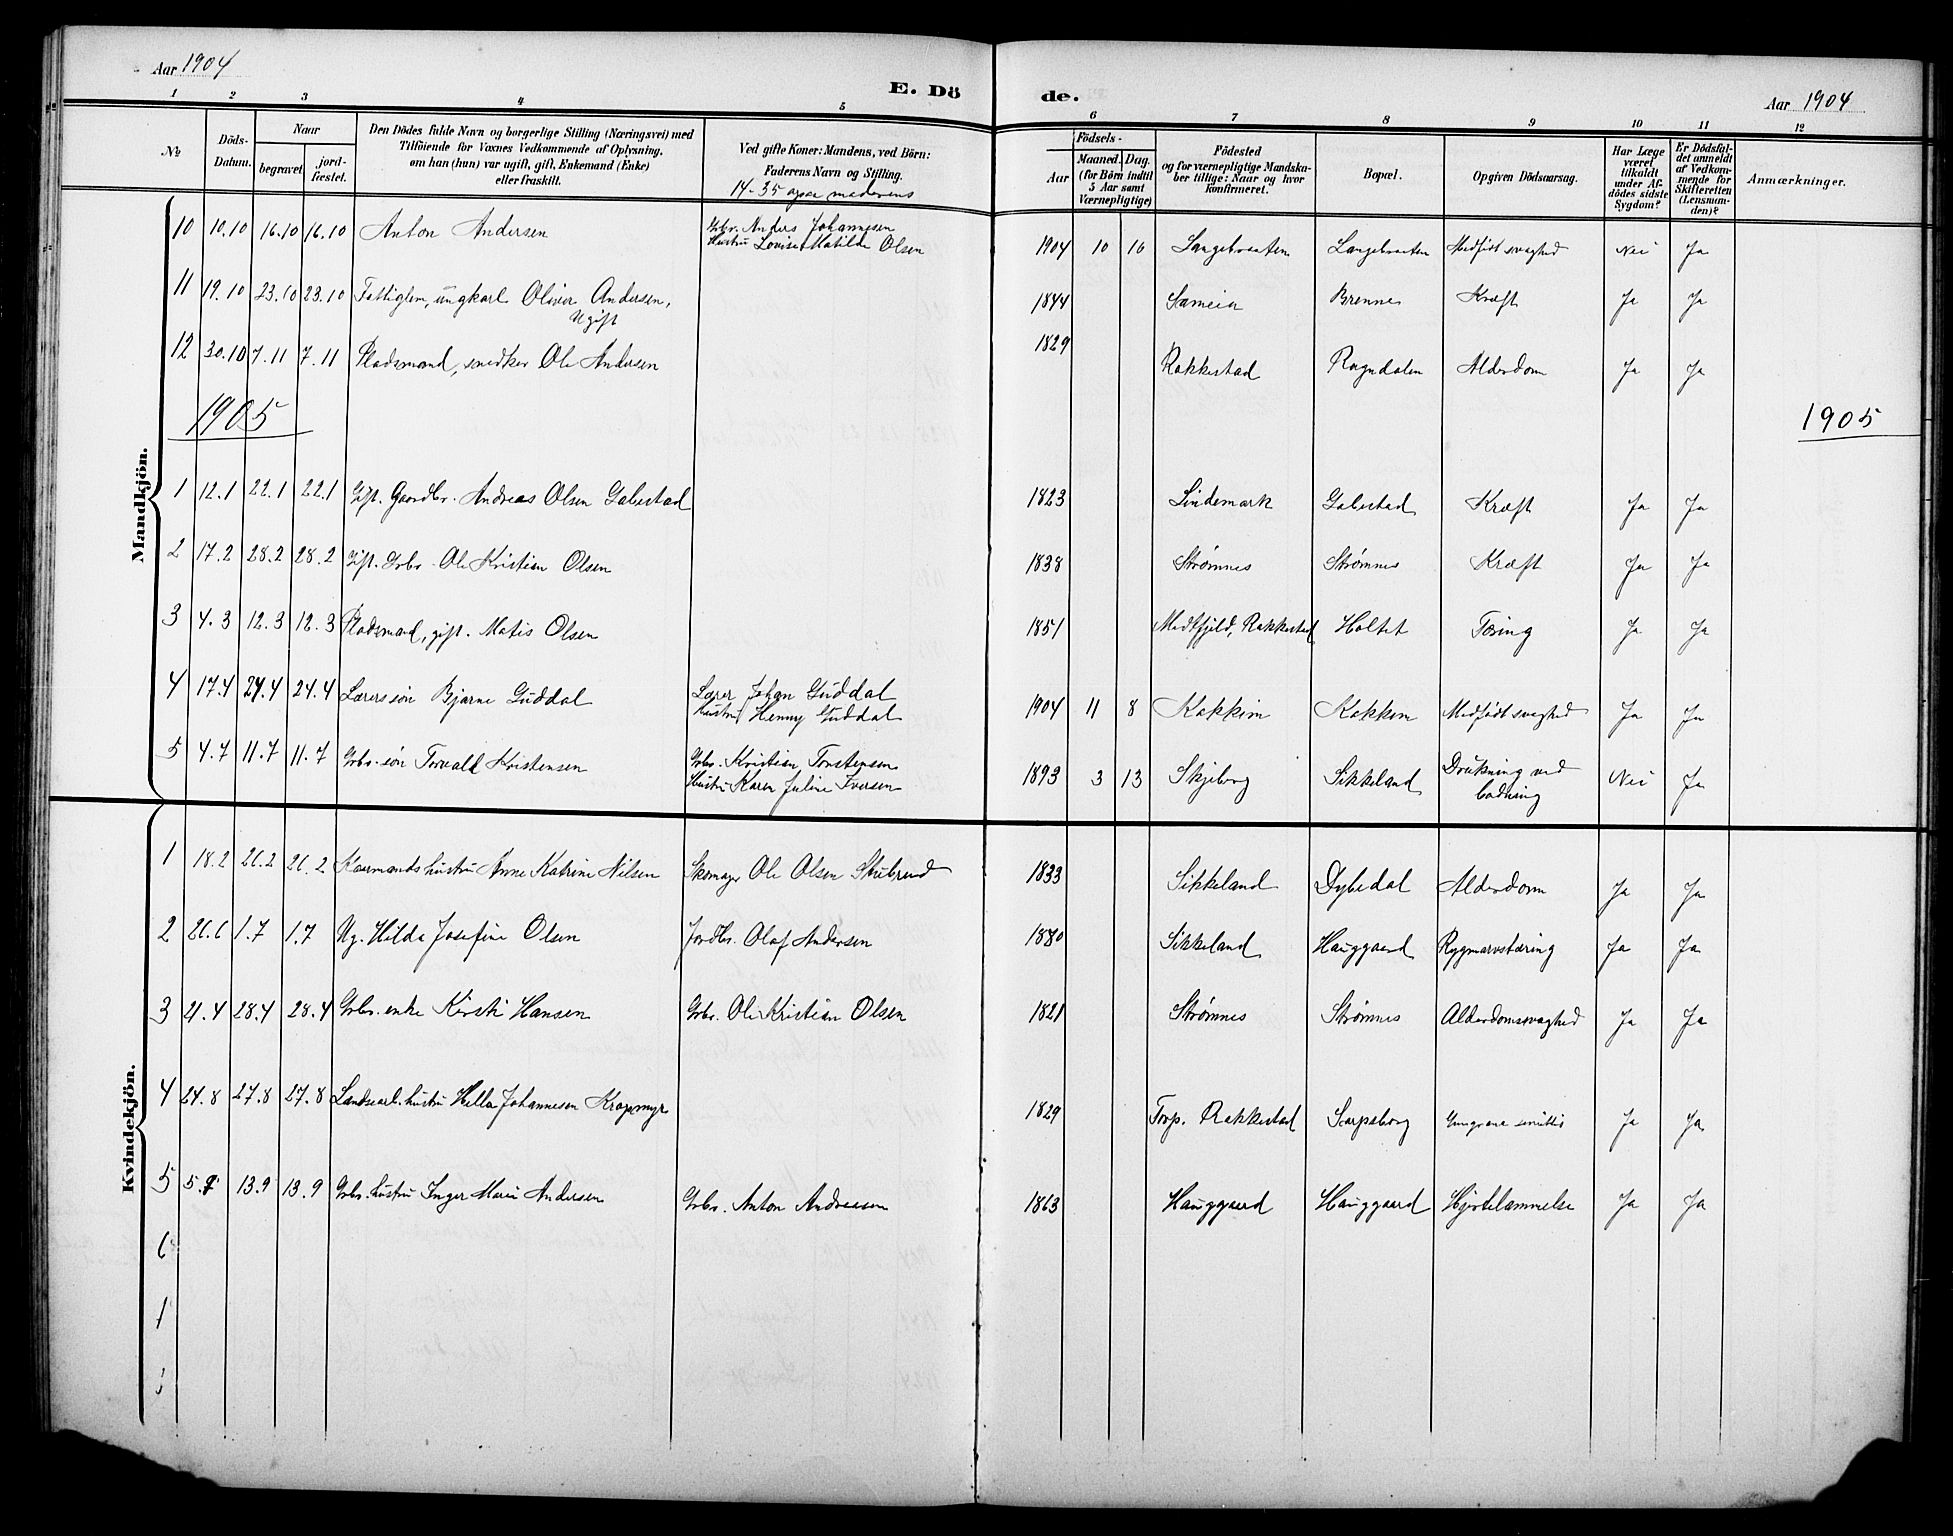 Aar 1904
E. Dö de.
Aar 1904
1 2 3 4 5 6 7 8 9 10 11 12
No
Döds-Datum.
Naar
begravet
jord-fæstet.
Den Dödes fulde Navn og borgerlige Stilling (Næringsvei) med
Tilföiende for Voxnes Vedkommende af Oplysning,
om han (hun) var ugift, gift, Enkemand (Enke)
eller fraskilt.
Ved gifte Koner: Mandens, ved Börn:
Faderens Navn og Stilling.
14-35 ogsaa moderens
Födsels-
Aar
Maaned. Dag.
(for Börn indtil
5 Aar samt
Værnepligtige)
Födested
og for værnepligtige Mandska-
ber tillige: Naar og hvor
konfirmeret.
Bopæl.
Opgiven Dödsaarsag.
Har Læge
været
tilkaldt
under Af-
dödes sidste
Sygdom?
Er Dödsfal-
det anmeldt
af Vedkom-
mende for
Skifteretten
(Lensman-
den)?
Anmærkninger.
Mandkjön.
10 10.10 16.10 16.10 Anton Andersen Grbr. Anders Johannesen 1904 10 10 Langebraaten Langebraaten Medfødt svaghed Nei Ja
Hustru Lovise Matilde Olsen
11 19.10 23.10 23.10 Fattiglem, ungkarl Oliver Andersen, 1844 Sameia Brenne Kræft Ja Ja
Ugift
12 30.10 7.11 7.11 Pladsmand, snedker Ole Andersen 1829 Rakkestad Rogndalen Alderdom Ja Ja
1905 1905
1 12.1 22.1 22.1 Gift. Gaardbr. Andreas Olsen Gabestad 1823 Lindemark Gabestad Kræft Ja Ja
2 17.2 28.2 28.2 Gift. Grbr. Ole Kristian Olsen 1838 Strømnes Strømnes Kræft Ja Ja
3 4.3 12.3 12.3 Pladsmand, gift. Matis Olsen 1851 Midtfjeld, Rakkestad Holtet Tæring Ja Ja
4 17.4 24.4 24.4 Lærers søn Bjarne Guddal Lærer Johan Guddal 1904 11 8 Kakkim Kakkim Medfødt svaghed Ja Ja
Hustru Henny Guddal
5 4.7 11.7 11.7 Grbr. søn Torvald Kristensen Grbr. Kristian Torstensen 1893 3 13 Skjeberg Sikkeland Drukning ved Nei Ja
Hustru Karen Juline Iversen badning
Kvindekjön.
1 18.2 26.2 26.2 Kaarmands hustru Anne Katrine Nilsen Skomager Ole Olsen Stubrud 1833 Sikkeland Dybedal Alderdom Ja Ja
2 26.6 1.7 1.7 Ug. Hilda Josefine Olsen Jordbr. Olaf Andersen 1880 Sikkeland Hauggaard Rygmarvstæring Ja Ja
3 21.4 28.4 28.4 Grbr. enke Kirsti Hansen Grbr. Ole Kristian Olsen 1821 Strømnes Strømnes Alderdomssvaghed Ja Ja
4 24.8 27.8 27.8 Landsarb. hustru Hella Johannesen Kropmyr 1829 Torp. Rakkestad Sarpsborg Gangræna senilis Ja Ja
5 5.9 13.9 13.9 Grbr. hustru Inger Marie Andersen Grbr. Anton Andreasen 1863 Hauggaard Hauggaard Hjertelammelse Ja Ja
6
1